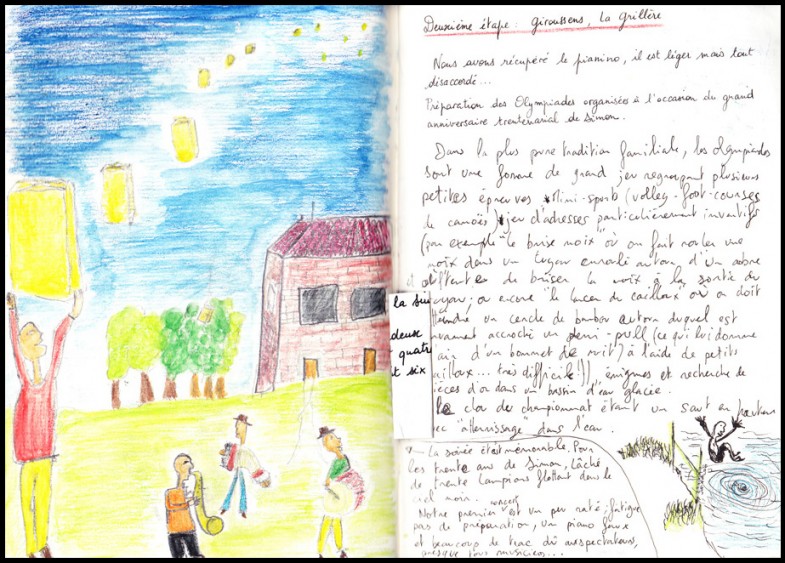 Deuxième étape : Giroussens, La Grillère
Nous avons récupéré le pianino, il est léger mais tout
désaccordé...
Préparation des Olympiades organisées à l'occasion du grand
anniversaire trentenarial de Simon.
Dans la plus pure tradition familiale, les olympiades
sont une forme de grand jeu regroupant plusieurs
petites épreuves Mini-sports (volley-foot-courses
de canoës) jeu d'adresses particulièrement inventifs
(par exemple "le brise noix" où on fait rouler une
noix dans un tuyau enroulé autour d'un arbre
et tente de briser la noix à la sortie du
tuyau; ou encore le lancer de cailloux où on doit
la sui
un cercle de bambou autour duquel est
deux
accroché un demi-pull (ce qui lui donne
quatr
d'un bonnet de nuit) à l'aide de petits
t six
... très difficile!)) énigmes et recherche de
d'or dans un bassin d'eau glacée.
le clou du championnat étant un saut en
"atterrissage" dans l'eau.
La soirée était mémorable. Pour
les trente ans de Simon. Lâché
de trente lampions flottant dans le
ciel noir.
concert
Notre premier est un peu raté : fatigue
pas de préparation, un piano faux
et beaucoup de trac dû aux spectateurs,
presque tous musiciens...